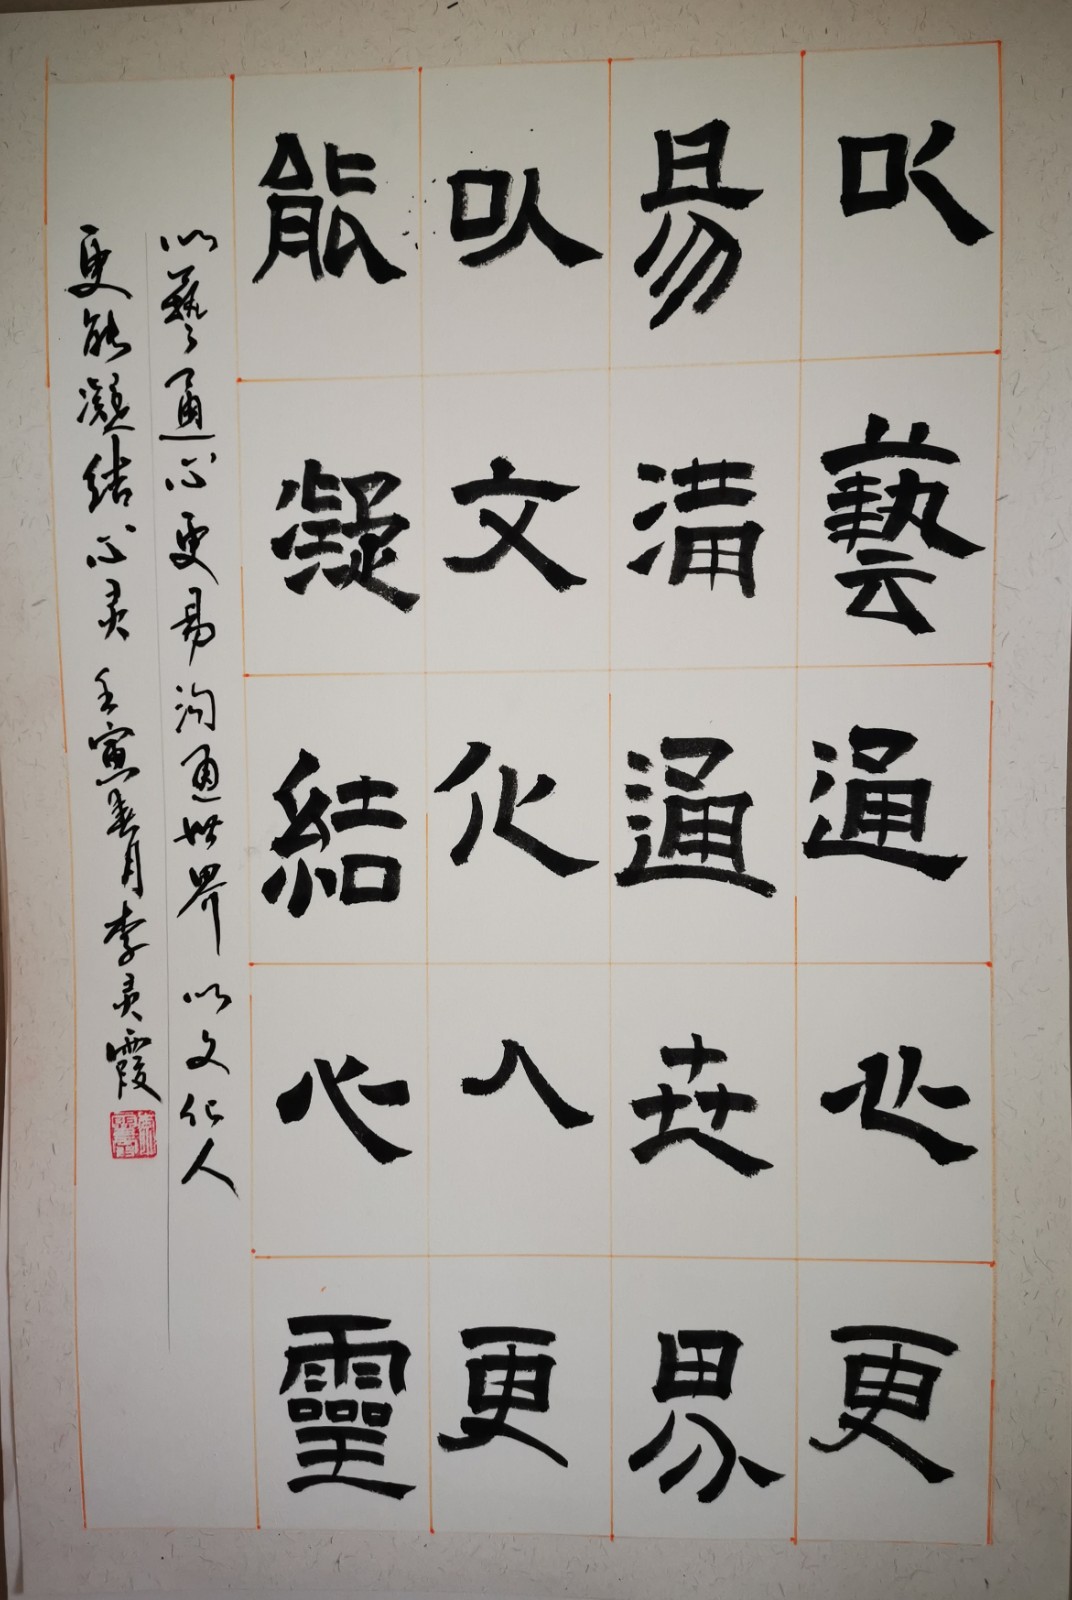 以藝通心更
易溝通世界
以文化人更
能凝結心靈
以藝通心更易沟通世界以文化人
更能凝结心灵 壬寅春月李灵霞